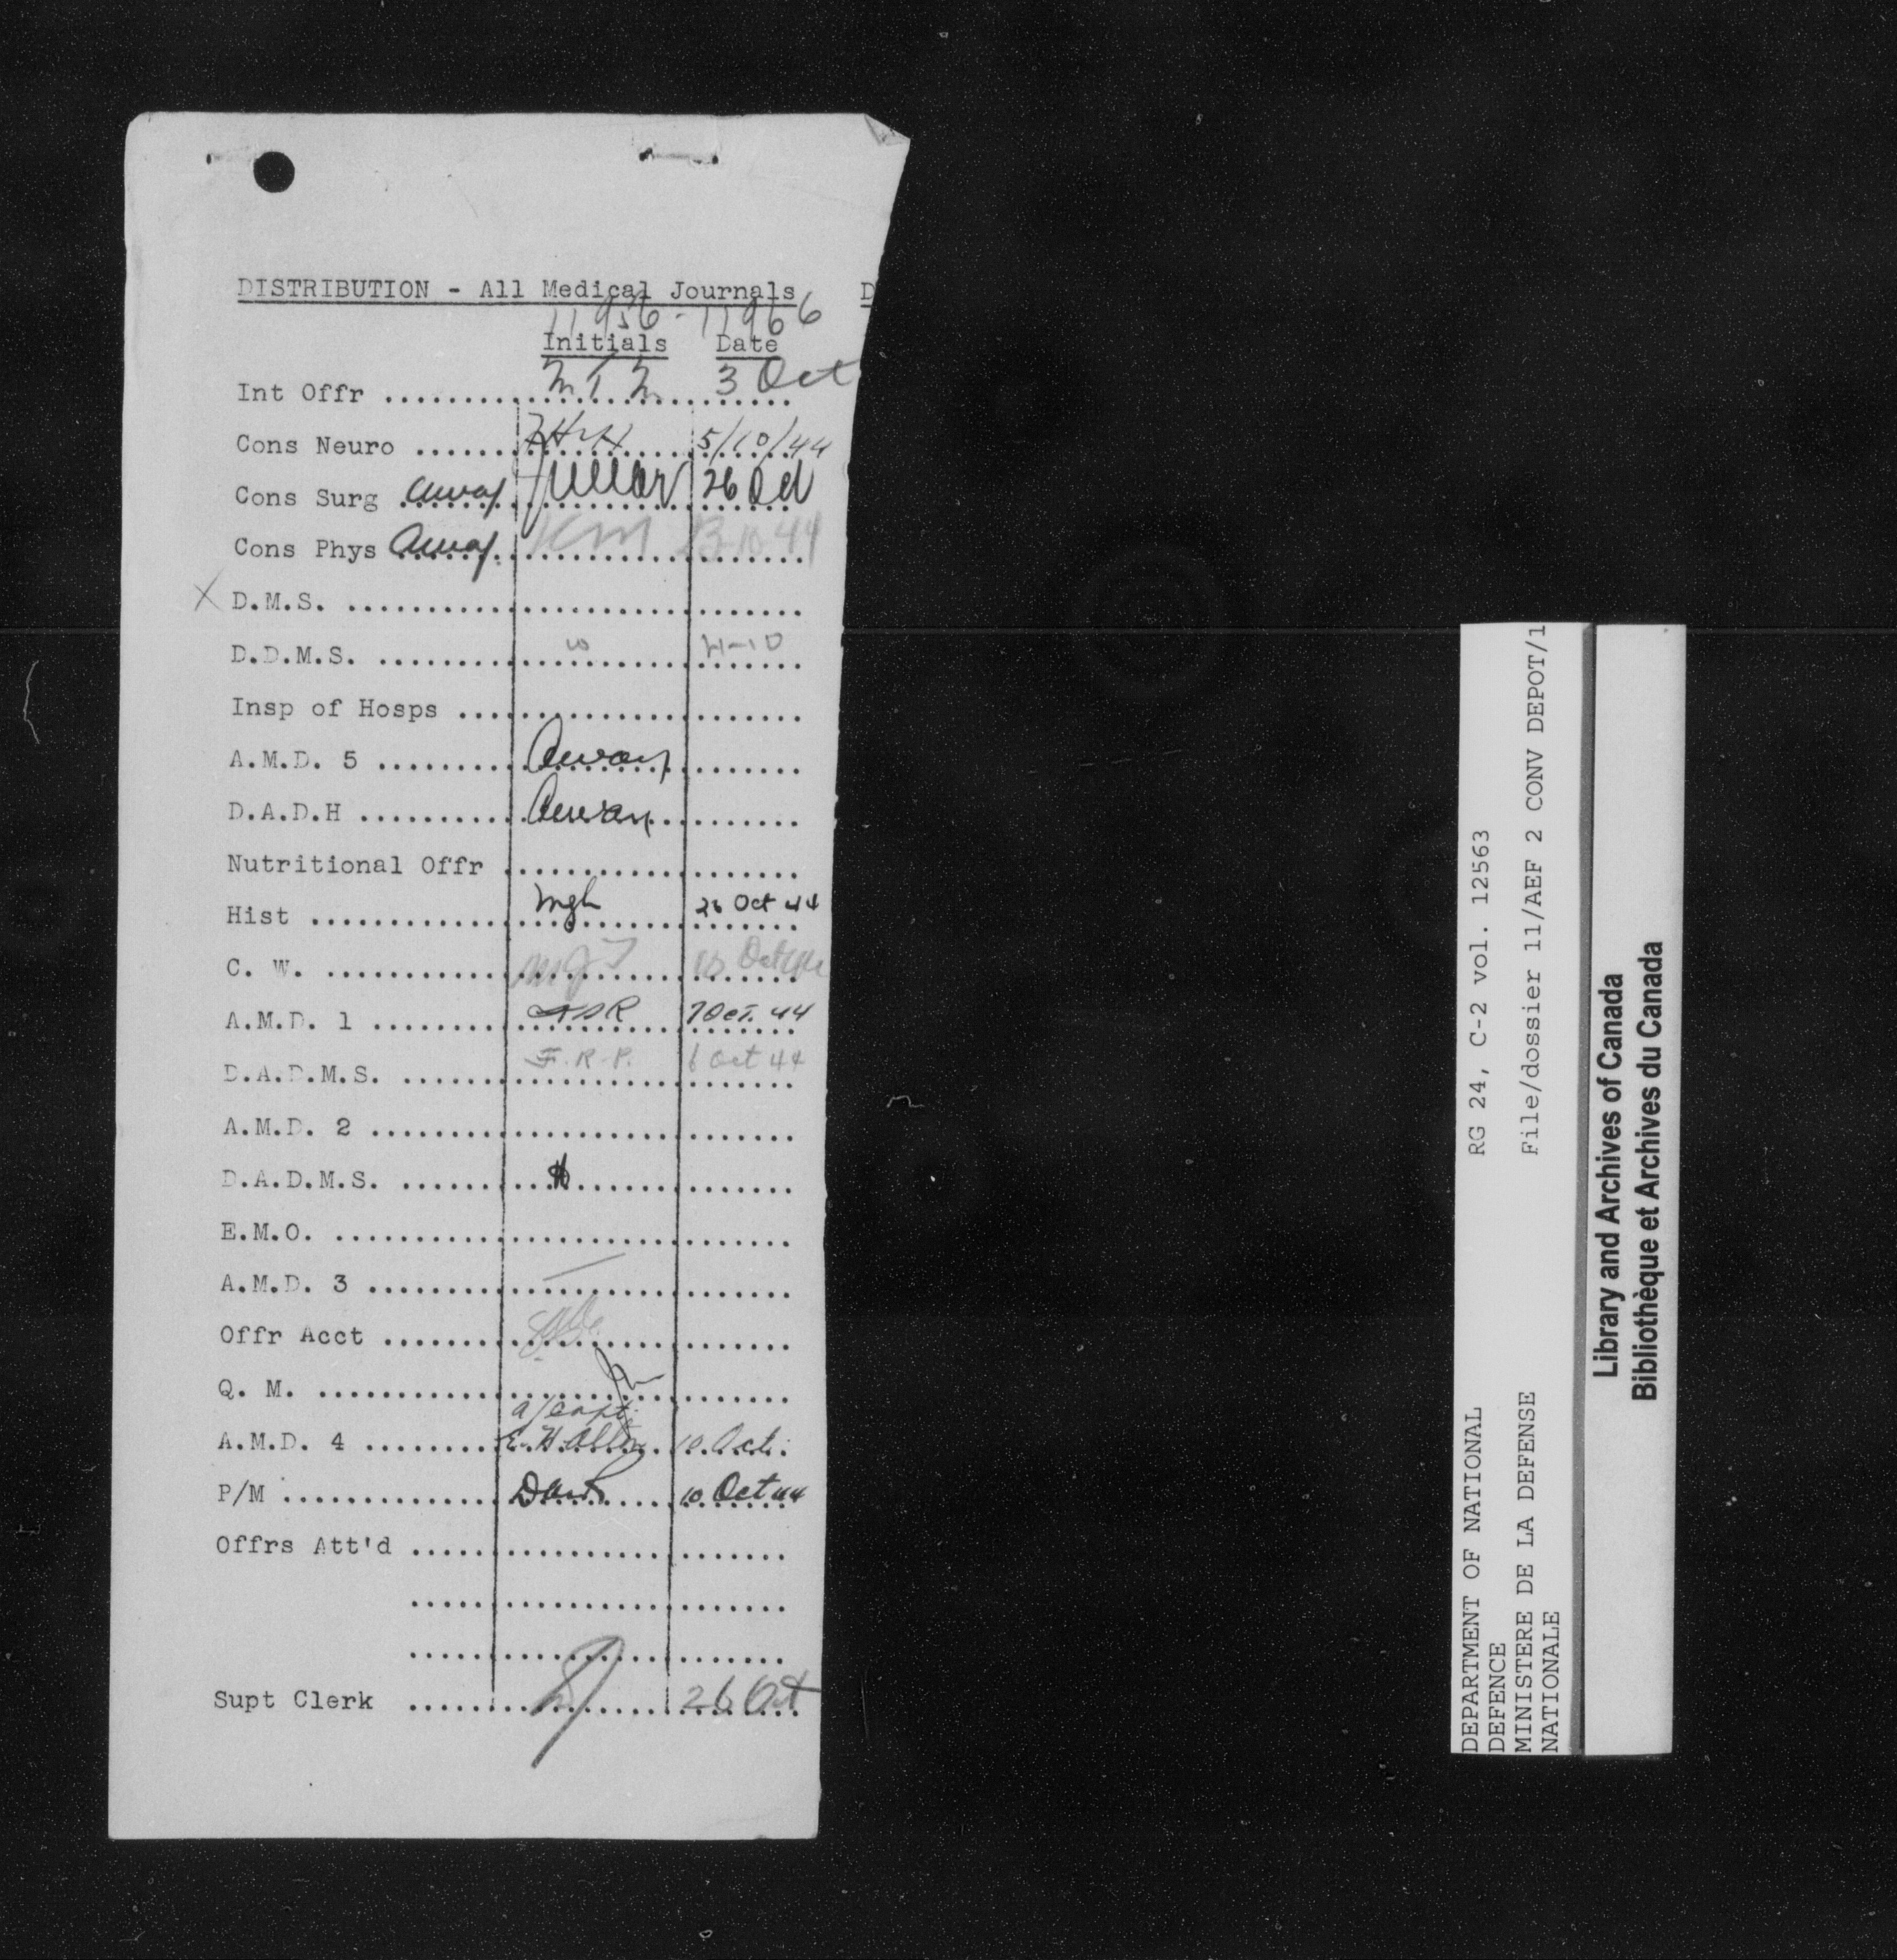 DISTRIBUTION - All Medical Journals D
11956 - 11966
Initials Date
Int Offr .......... 3 Oct
Cons Neuro .......... 5/10/44
Cons Surg away .......... 26 Oct
Cons Phys away .......... KM 23-10-44
X D.M.S. ..........
D.D.M.S. .......... 4-10
Insp of Hosps ..........
A.M.D. 5 .......... Away
D.A.D.H .......... Away
Nutritional Offr ..........
Hist .......... mgh 26 Oct 44
C. W. .......... Oct
A.M.D. 1 .......... 7 Oct. 44
D.A.D.M.S. .......... F.R.P. 6 Oct 44
A.M.D. 2 ..........
D.A.D.M.S. ..........
E.M.O. ..........
A.M.D. 3 ..........
Offr Acct ..........
Q. M. ..........
A.M.D. 4 .......... 10 Oct.
P/M .......... 10 Oct 44
Offrs Att'd ..........
..........
..........
Supt Clerk .......... 26 Oct
DEPARTMENT OF NATIONAL RG 24, C-2 vol. 12563
DEFENCE
MINISTERE DE LA DEFENSE File/dossier 11/AEF 2 CONV DEPOT/1
NATIONALE
Library and Archives of Canada
Bibliothèque et Archives du Canada